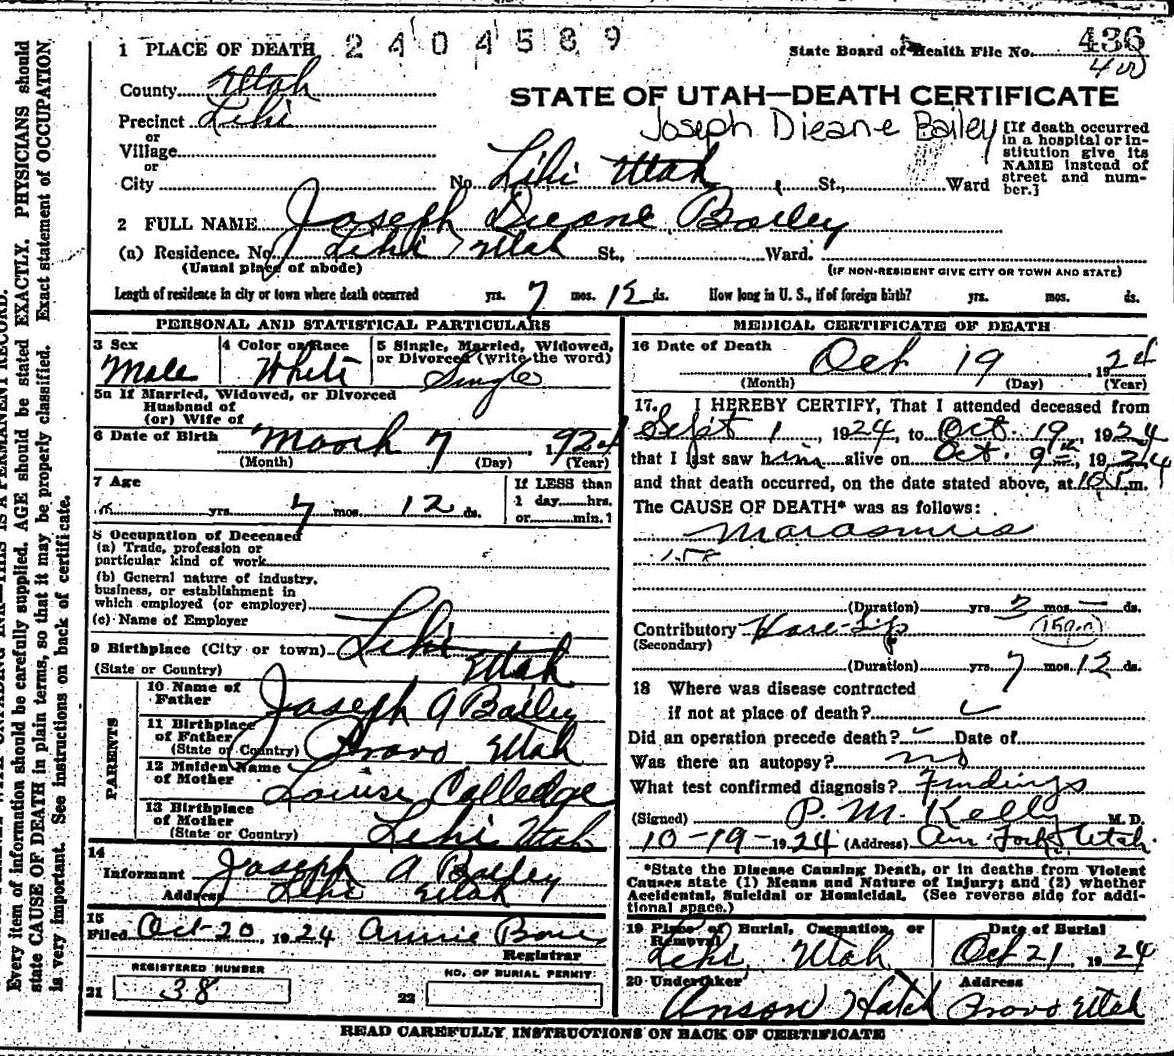 1 PLACE OF DEATH 2404589
State Board of Health File No. 436
400
County Utah
STATE OF UTAH—DEATH CERTIFICATE
Precinct Lehi
Joseph Dieane Bailey
[If death occurred in a hospital or institution give its NAME instead of street and number.]
or
Village
or
City No. Lihi Utah St., Ward
2 FULL NAME Joseph Dieane Bailey
(a) Residence. No. Lehi Utah St., Ward.
(Usual place of abode) (IF NON-RESIDENT GIVE CITY OR TOWN AND STATE)
Length of residence in city or town where death occurred yrs. 7 mos. 12 ds. How long in U. S., if of foreign birth? yrs. mos. ds.
PERSONAL AND STATISTICAL PARTICULARS
3 Sex
Male
4 Color or Race
White
5 Single, Married, Widowed, or Divorced (write the word)
Single
5a If Married, Widowed, or Divorced
Husband of
(or) Wife of
6 Date of Birth March 7, 1924
(Month) (Day) (Year)
7 Age
yrs. 7 mos. 12 ds.
If LESS than
1 day hrs.
or min.?
8 Occupation of Deceased
(a) Trade, profession or
particular kind of work
(b) General nature of industry,
business, or establishment in
which employed (or employer)
(c) Name of Employer
9 Birthplace (City or town) Lehi
(State or Country) Utah
PARENTS
10 Name of
Father Joseph A Bailey
11 Birthplace
of Father
(State or Country) Provo Utah
12 Maiden Name
of Mother Louise Colledge
13 Birthplace
of Mother
(State or Country) Lehi Utah
14
Informant Joseph A Bailey
Address Lehi Utah
15
Filed Oct-20, 1924 Annie
Registrar
REGISTERED NUMBER
21 38
NO. OF BURIAL PERMIT:
22
MEDICAL CERTIFICATE OF DEATH
16 Date of Death Oct 19, 1924
(Month) (Day) (Year)
17. I HEREBY CERTIFY, That I attended deceased from
Sept 1, 1924, to Oct. 19, 1924
that I last saw him alive on Oct. 9th, 1924
and that death occurred, on the date stated above, at 10 P.m.
The CAUSE OF DEATH* was as follows:
Marasmus
(Duration) yrs. mos. — ds.
Contributory Hare-Lip
(Secondary)
(Duration) yrs. 7 mos. 12 ds.
18 Where was disease contracted
if not at place of death?
Did an operation precede death? Date of
Was there an autopsy? no
What test confirmed diagnosis? Findings
(Signed) P. M. Kelly M. D.
10-19-1924 (Address) Am Fork, Utah.
*State the Disease Causing Death, or in deaths from Violent
Causes state (1) Means and Nature of Injury; and (2) whether
Accidental, Suicidal or Homicidal. (See reverse side for addi-
tional space.)
19 Place of Burial, Cremation, or Removal
Lehi, Utah
Date of Burial
Oct 21, 1924
20 Undertaker
Anson Hatch
Address
Provo Utah
READ CAREFULLY INSTRUCTIONS ON BACK OF CERTIFICATE
Every item of information should be carefully supplied. AGE should be stated EXACTLY. PHYSICIANS should
state CAUSE OF DEATH in plain terms, so that it may be properly classified. Exact statement of OCCUPATION
is very important. See instructions on back of certificate.